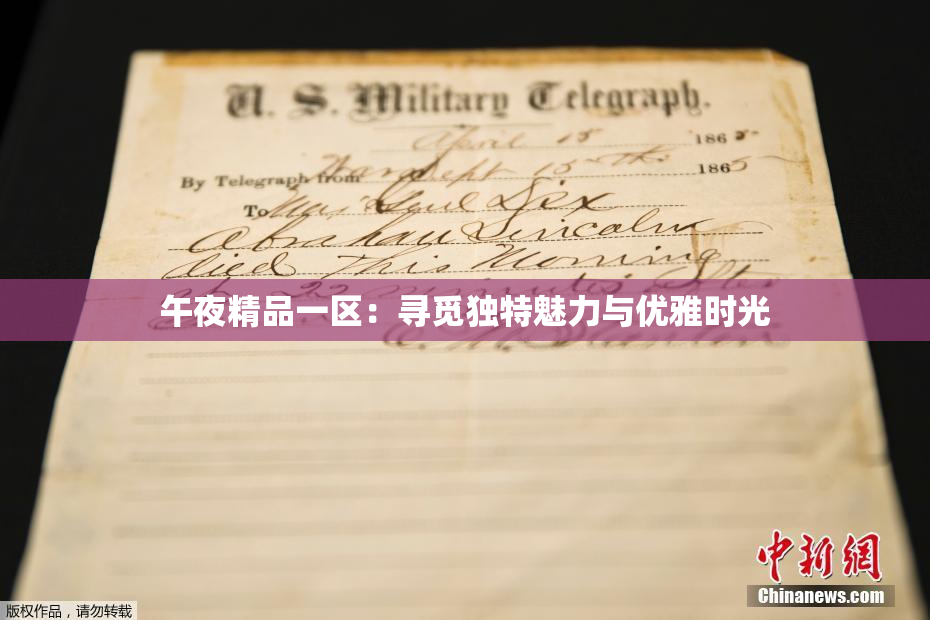 U. S. Military Telegraph.
April 15 1865
By Telegraph from War Dept 15th 1865
To Maj Genl Dix
Abraham Lincoln
died This Morning
at 22 minutes after
午夜精品一区：寻觅独特魅力与优雅时光
中新网
Chinanews.com
版权作品，请勿转载